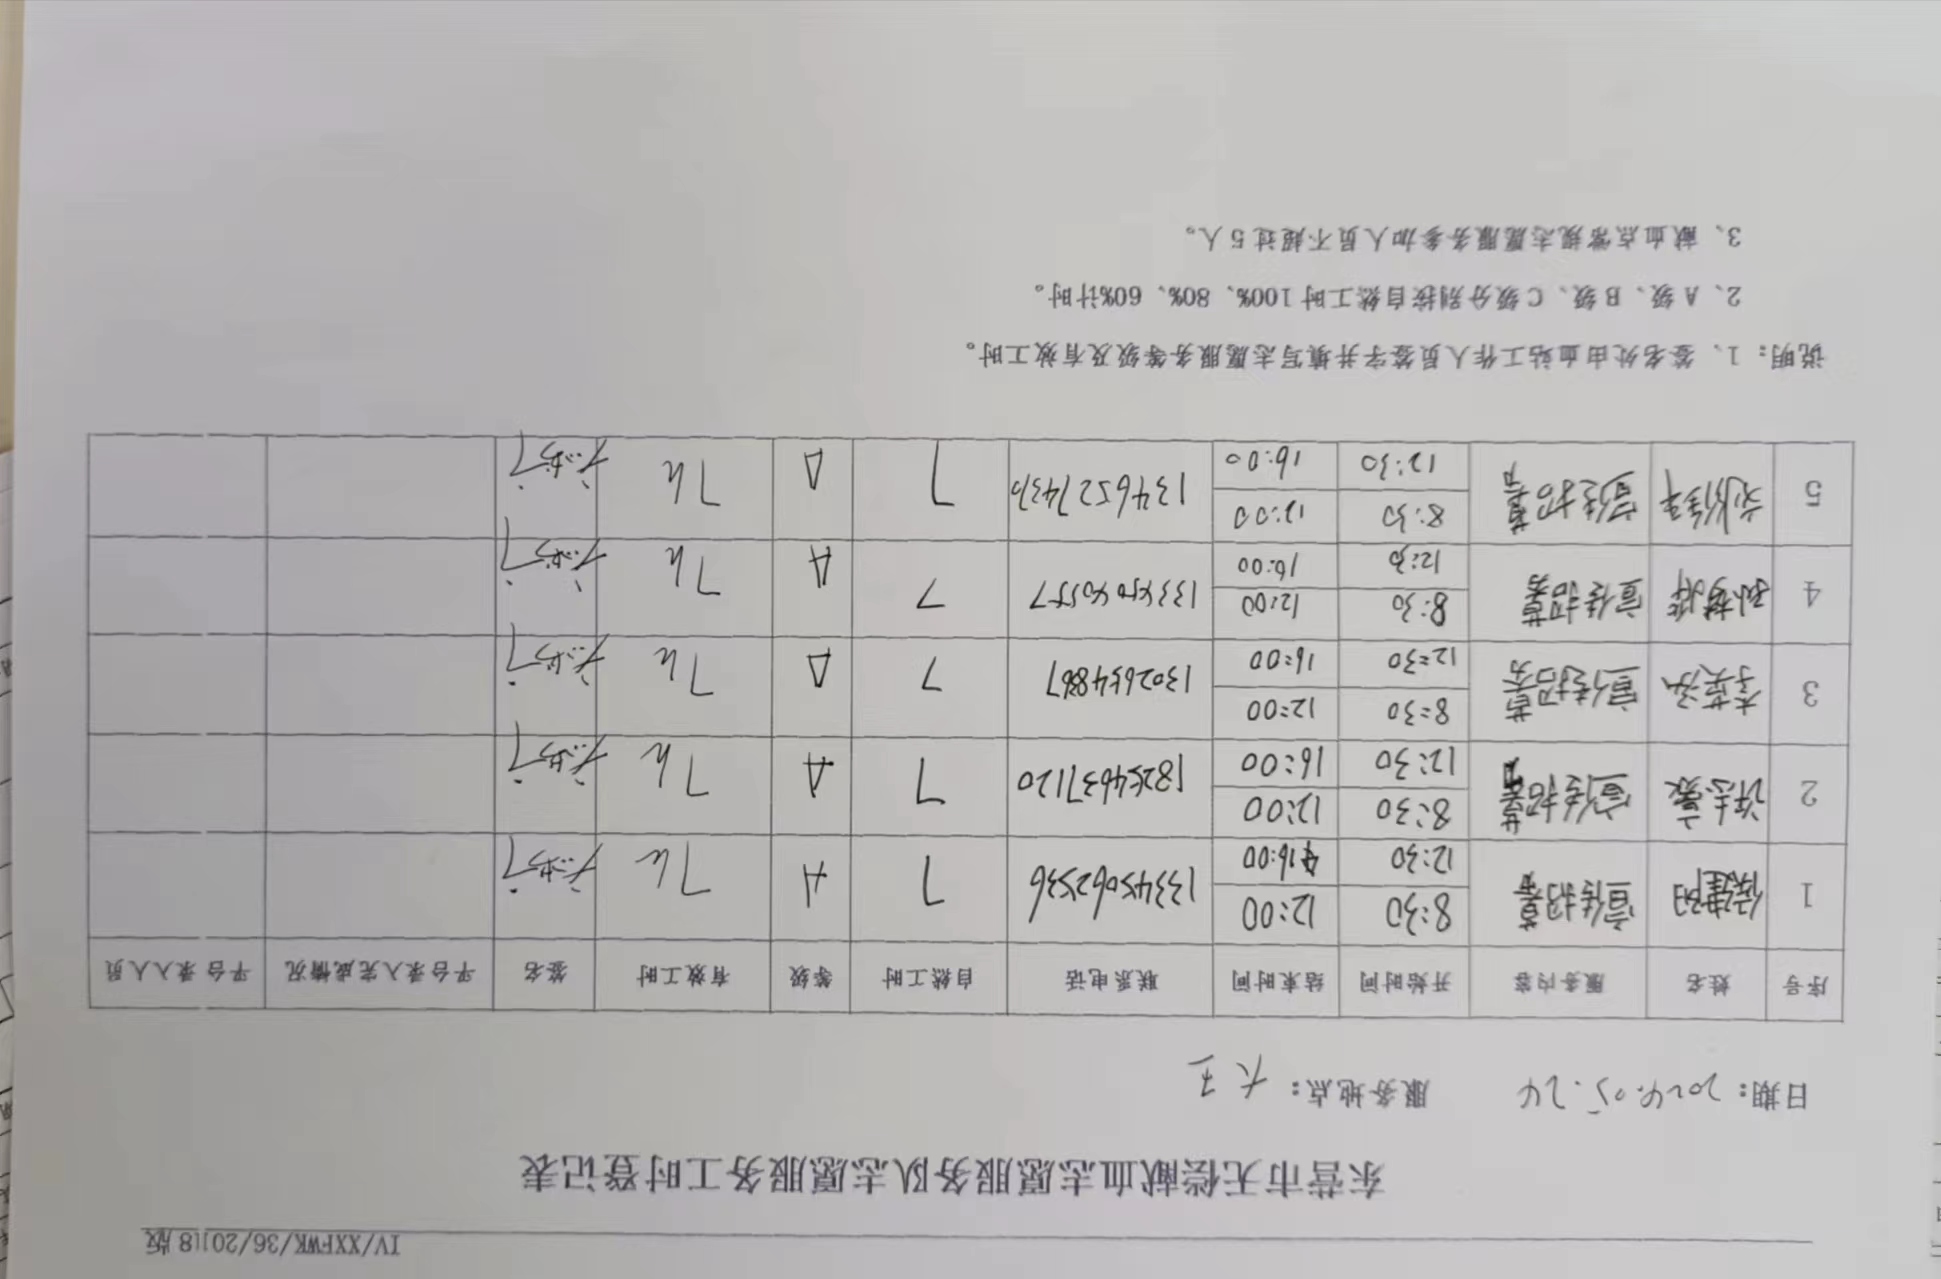 IV/XXFWK/36/2018版
东营市无偿献血志愿服务队志愿服务工时登记表
日期：2024.05.24 服务地点：大王
序号 姓名 服务内容 开始时间 结束时间 联系电话 自然工时 等级 有效工时 签名 平台录入完成情况 平台录入人员
1 宣传招募 8:30 12:00 13345062536 7 A 7h
12:30 16:00
2 许志豪 宣传招募 8:30 12:00 18254637120 7 A 7h
12:30 16:00
3 李英泓 宣传招募 8:30 12:00 7 A 7h
12:30 16:00
4 孙梦烨 宣传招募 8:30 12:00 7 A 7h
12:30 16:00
5 宣传招募 8:30 12:00 7 A 7h
12:30 16:00
说明：1、签名处由血站工作人员签字并填写志愿服务等级及有效工时。
2、A级、B级、C级分别按自然工时100%、80%、60%计时。
3、献血点常规志愿服务参加人员不超过5人。